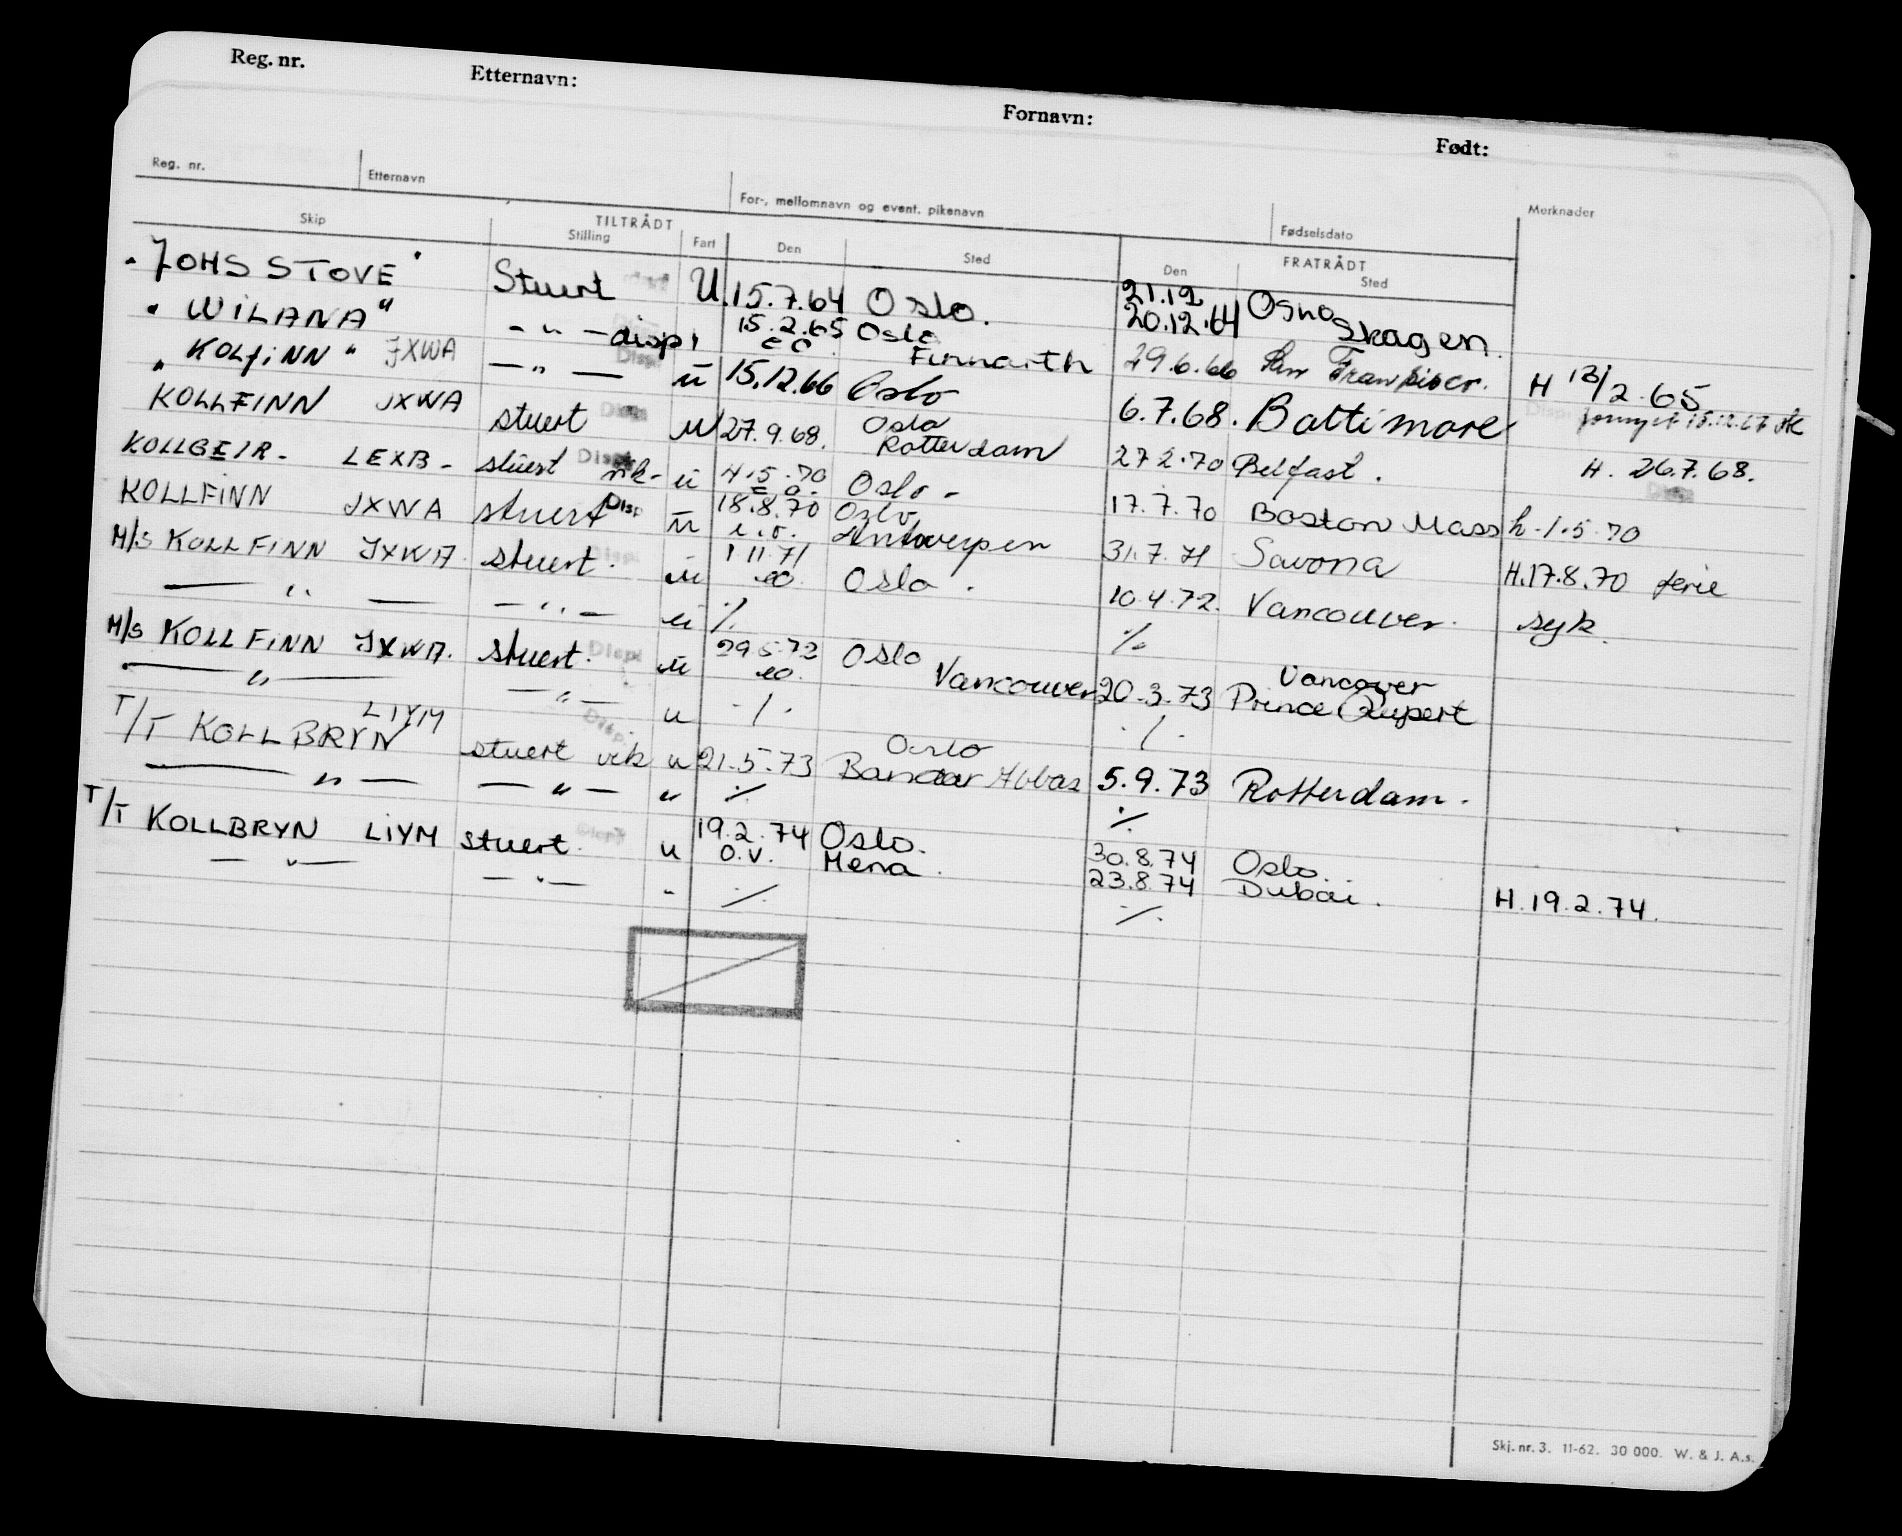 Reg. nr. Etternavn: Fornavn: Født:
Reg. nr. Etternavn For-, mellomnavn og event. pikenavn Fødselsdato Merknader
Skip TILTRÅDT Stilling Fart Den Sted FRATRÅDT Den Sted
"JOHS STOVE" Stuert U 15.7.64 Oslo. 21.12 20.12.64 Osno Skagen.
"WILANA" - " - disp 15.2.65 Oslo
EO Finnarth 29.6.66 San H 13/2.65
"KOLFINN" JXWA — " — u 15.12.66 Oslo 6.7.68. Baltimore 18.12.67
KOLLFINN JXWA stuert Disp u 27.9.68. Oslo Rotterdam 27 2.70 Belfast. H. 26.7.68.
KOLLGEIR - LEXB - stuert vik- Disp u 4.5.70 E O. Oslo - 17.7.70 Boston Mass h. 1.5.70
KOLLFINN JXWA stuert Disp u 18.8.70 e.o. Oslo Antwerpen 31.7.71 Savona H.17.8.70 ferie
M/S KOLLFINN JXWA. stuert. Disp u 1 11.71 eo. Oslo. 10.4.72. Vancouver. syk.
— " — — " — u % %
M/S KOLLFINN JXWA. stuert. Disp u 29.5.72 eo. Oslo Vancouver 20.3.73 Vancover Prince Rupert
— " — — " — u ·/· ·/·
T/T KOLLBRYN LIYM stuert vik Disp. u 21.5.73 Oslo Bandar Abbas 5.9.73 Rotterdam.
— " — — " — " % %
T/T KOLLBRYN LIYM stuert. u 19.2.74 O.V. Oslo. Mena. 30.8.74 23.8.74 Oslo. Dubai. H.19.2.74.
— " — — " — " % %
Skj. nr. 3. 11-62. 30 000. W. & J. A.s.